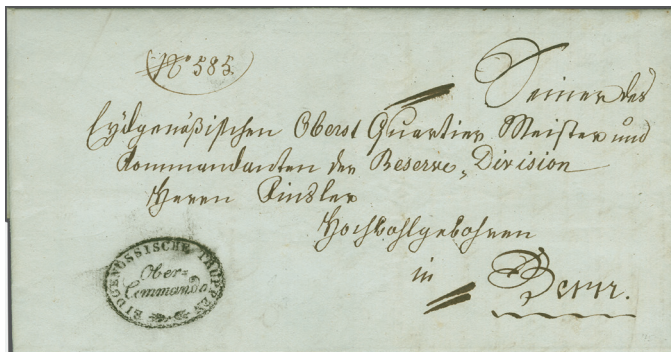 No 585.
Seiner des
Eydgenößischen Oberst Quartier Meister und
Kommandanten der Reserve-Division
Herrn Finsler
Hochwohlgebohren
in
Bern.
EIDGENÖSSISCHE TRUPPEN
Ober=
Commando